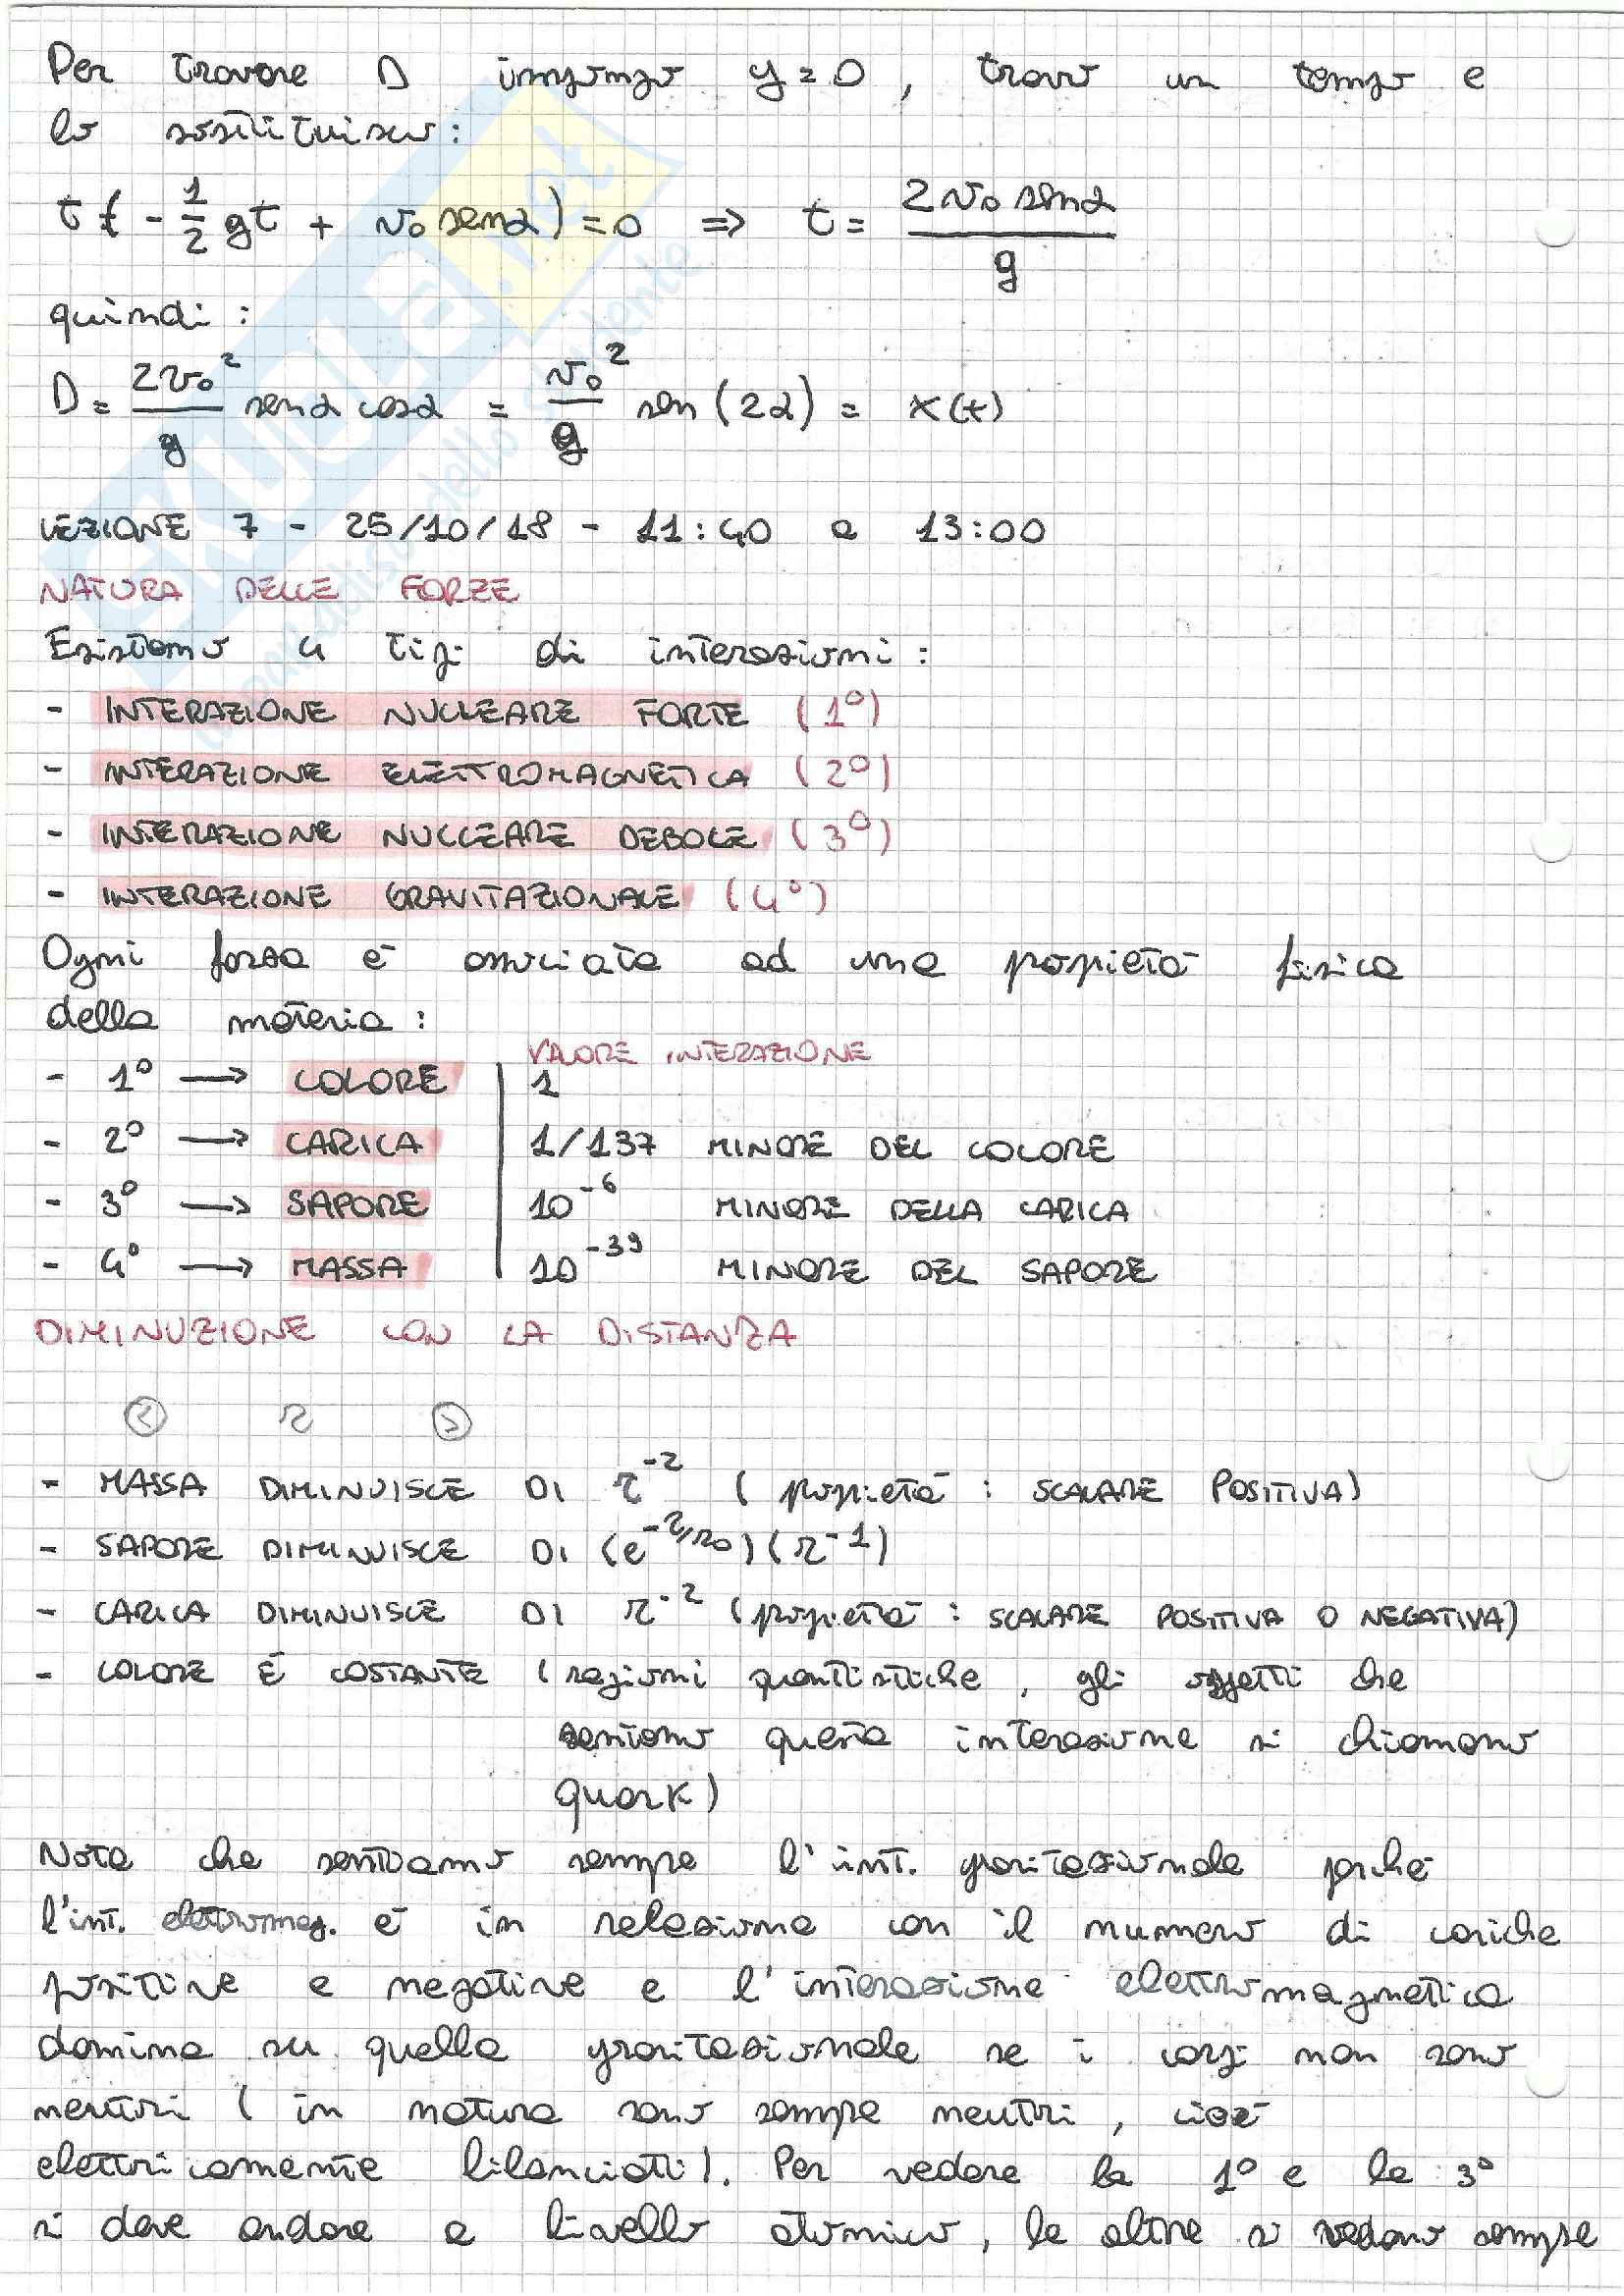 Per trovare D impongo y = 0, trovo un tempo e
lo sostituisco:
t(-1/2 gt + v₀ senα) = 0 ⇒ t = 2v₀ senα / g
quindi:
D = 2v₀²/g senα cosα = v₀²/g sen(2α) = x(t)
LEZIONE 7 - 25/10/18 - 11:40 a 13:00
NATURA DELLE FORZE
Esistono 4 tipi di interazioni:
- INTERAZIONE NUCLEARE FORTE (1°)
- INTERAZIONE ELETTROMAGNETICA (2°)
- INTERAZIONE NUCLEARE DEBOLE (3°)
- INTERAZIONE GRAVITAZIONALE (4°)
Ogni forza è associata ad una propietà fisica
della materia:
VALORE INTERAZIONE
- 1° → COLORE | 1
- 2° → CARICA | 1/137 MINORE DEL COLORE
- 3° → SAPORE | 10⁻⁶ MINORE DELLA CARICA
- 4° → MASSA | 10⁻³⁹ MINORE DEL SAPORE
DIMINUZIONE CON LA DISTANZA
r
- MASSA DIMINUISCE DI r⁻² (propietà: SCALARE POSITIVA)
- SAPORE DIMINUISCE DI (e^-r/r₀)(r⁻¹)
- CARICA DIMINUISCE DI r⁻² (propietà: SCALARE POSITIVA O NEGATIVA)
- COLORE È COSTANTE (ragioni quantistiche, gli oggetti che
sentono questa interazione si chiamano
quark)
Nota che sentiamo sempre l'int. gravitazionale perché
l'int. elettromag. è in relazione con il numero di cariche
positive e negative e l'interazione elettromagnetica
domina su quella gravitazionale se i corpi non sono
neutri (in natura sono sempre neutri, cioè
elettricamente bilanciati). Per vedere la 1° e la 3°
si deve andare a livello atomico, le altre si vedono sempre
SKUOLA.net
il paradiso dello studente